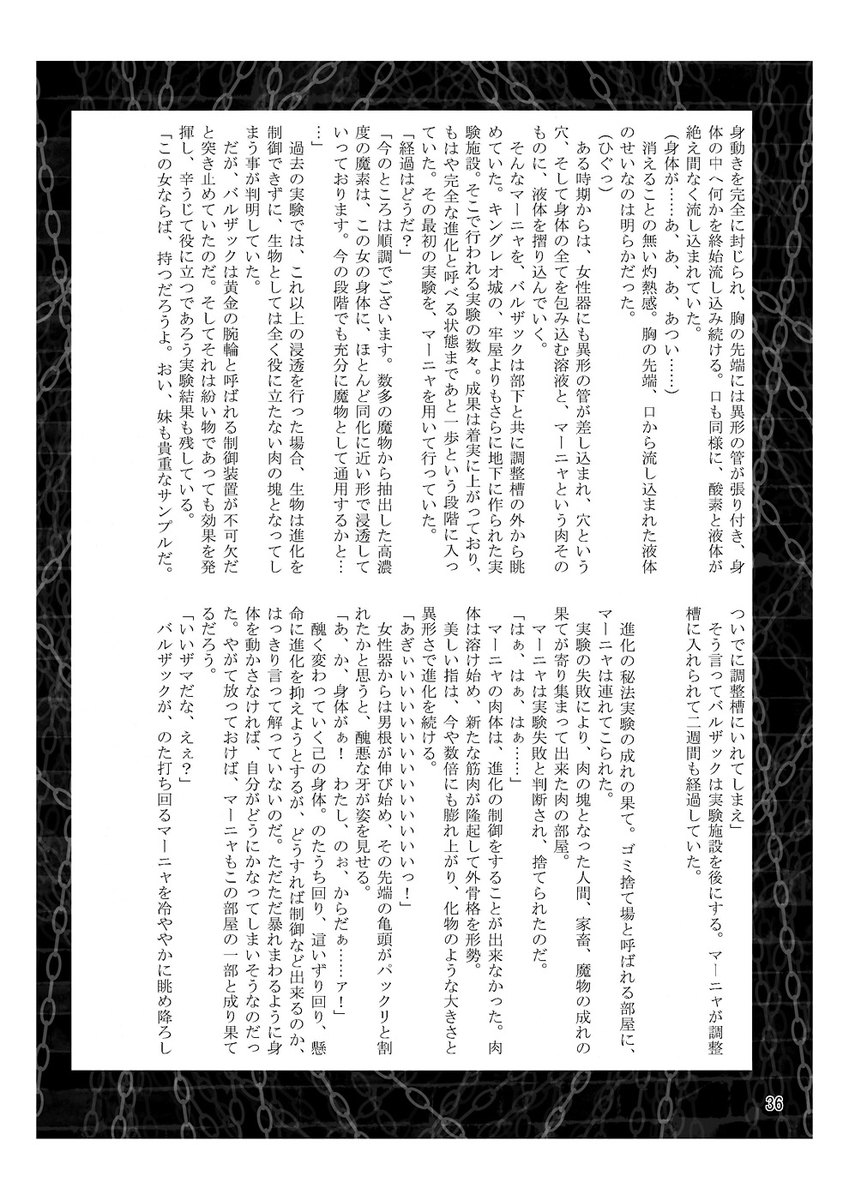 身動きを完全に封じられ、胸の先端には異形の管が張り付き、身
体の中へ何かを終始流し込み続ける。口も同様に、酸素と液体が
絶え間なく流し込まれていた。
(身体が……あ、あ、あ、あつい……)
消えることの無い灼熱感。胸の先端、口から流し込まれた液体
のせいなのは明らかだった。
(ひぐっ)
ある時期からは、女性器にも異形の管が差し込まれ、穴という
穴、そして身体の全てを包み込む溶液と、マーニャという肉その
ものに、液体を摺り込んでいく。
そんなマーニャを、バルザックは部下と共に調整槽の外から眺
めていた。キングレオ城の、牢屋よりもさらに地下に作られた実
験施設。そこで行われる実験の数々。成果は着実に上がっており、
もはや完全な進化と呼べる状態まであと一歩という段階に入っ
ていた。その最初の実験を、マーニャを用いて行っていた。
「経過はどうだ?」
「今のところは順調でございます。数多の魔物から抽出した高濃
度の魔素は、この女の身体に、ほとんど同化に近い形で浸透して
いっております。今の段階でも充分に魔物として通用するかと…
…」
過去の実験では、これ以上の浸透を行った場合、生物は進化を
制御できずに、生物としては全く役に立たない肉の塊となってし
まう事が判明していた。
だが、バルザックは黄金の腕輪と呼ばれる制御装置が不可欠だ
と突き止めていたのだ。そしてそれは紛い物であっても効果を発
揮し、辛うじて役に立つであろう実験結果も残している。
「この女ならば、持つだろうよ。おい、妹も貴重なサンプルだ。
ついでに調整槽にいれてしまえ」
そう言ってバルザックは実験施設を後にする。マーニャが調整
槽に入れられて二週間も経過していた。
進化の秘法実験の成れの果て。ゴミ捨て場と呼ばれる部屋に、
マーニャは連れてこられた。
実験の失敗により、肉の塊となった人間、家畜、魔物の成れの
果てが寄り集まって出来た肉の部屋。
マーニャは実験失敗と判断され、捨てられたのだ。
「はぁ、はぁ、はぁ……」
マーニャの肉体は、進化の制御をすることが出来なかった。肉
体は溶け始め、新たな筋肉が隆起して外骨格を形勢。
美しい指は、今や数倍にも膨れ上がり、化物のような大きさと
異形さで進化を続ける。
「あぎぃいいいいいいいいいいいいいっ!」
女性器からは男根が伸び始め、その先端の亀頭がパックリと割
れたかと思うと、醜悪な牙が姿を見せる。
「あ、か、身体がぁ! わたし、のぉ、からだぁ……ァ!」
醜く変わっていく己の身体。のたうち回り、這いずり回り、懸
命に進化を抑えようとするが、どうすれば制御など出来るのか、
はっきり言って解っていないのだ。ただただ暴れまわるように身
体を動かさなければ、自分がどうにかなってしまいそうなのだっ
た。やがて放っておけば、マーニャもこの部屋の一部と成り果て
るだろう。
「いいザマだな、えぇ?」
バルザックが、のた打ち回るマーニャを冷ややかに眺め降ろし
36